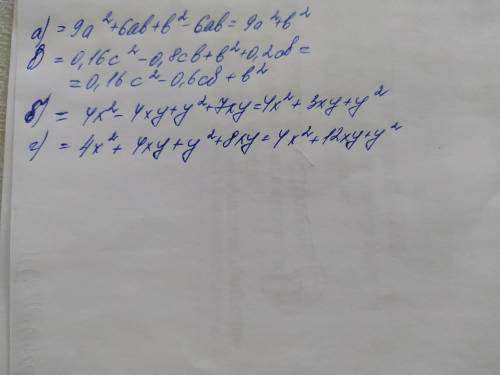 а) = 9a²+6ab+b²-6ab = 9a²+b²
в) = 0,16c²-0,8cb+b²+0,2cb =
= 0,16c²-0,6cb+b²
б) = 4x²-4xy+y²+7xy=4x²+3xy+y²
г) = 4x²+4xy+y²+8xy=4x²+12xy+y²